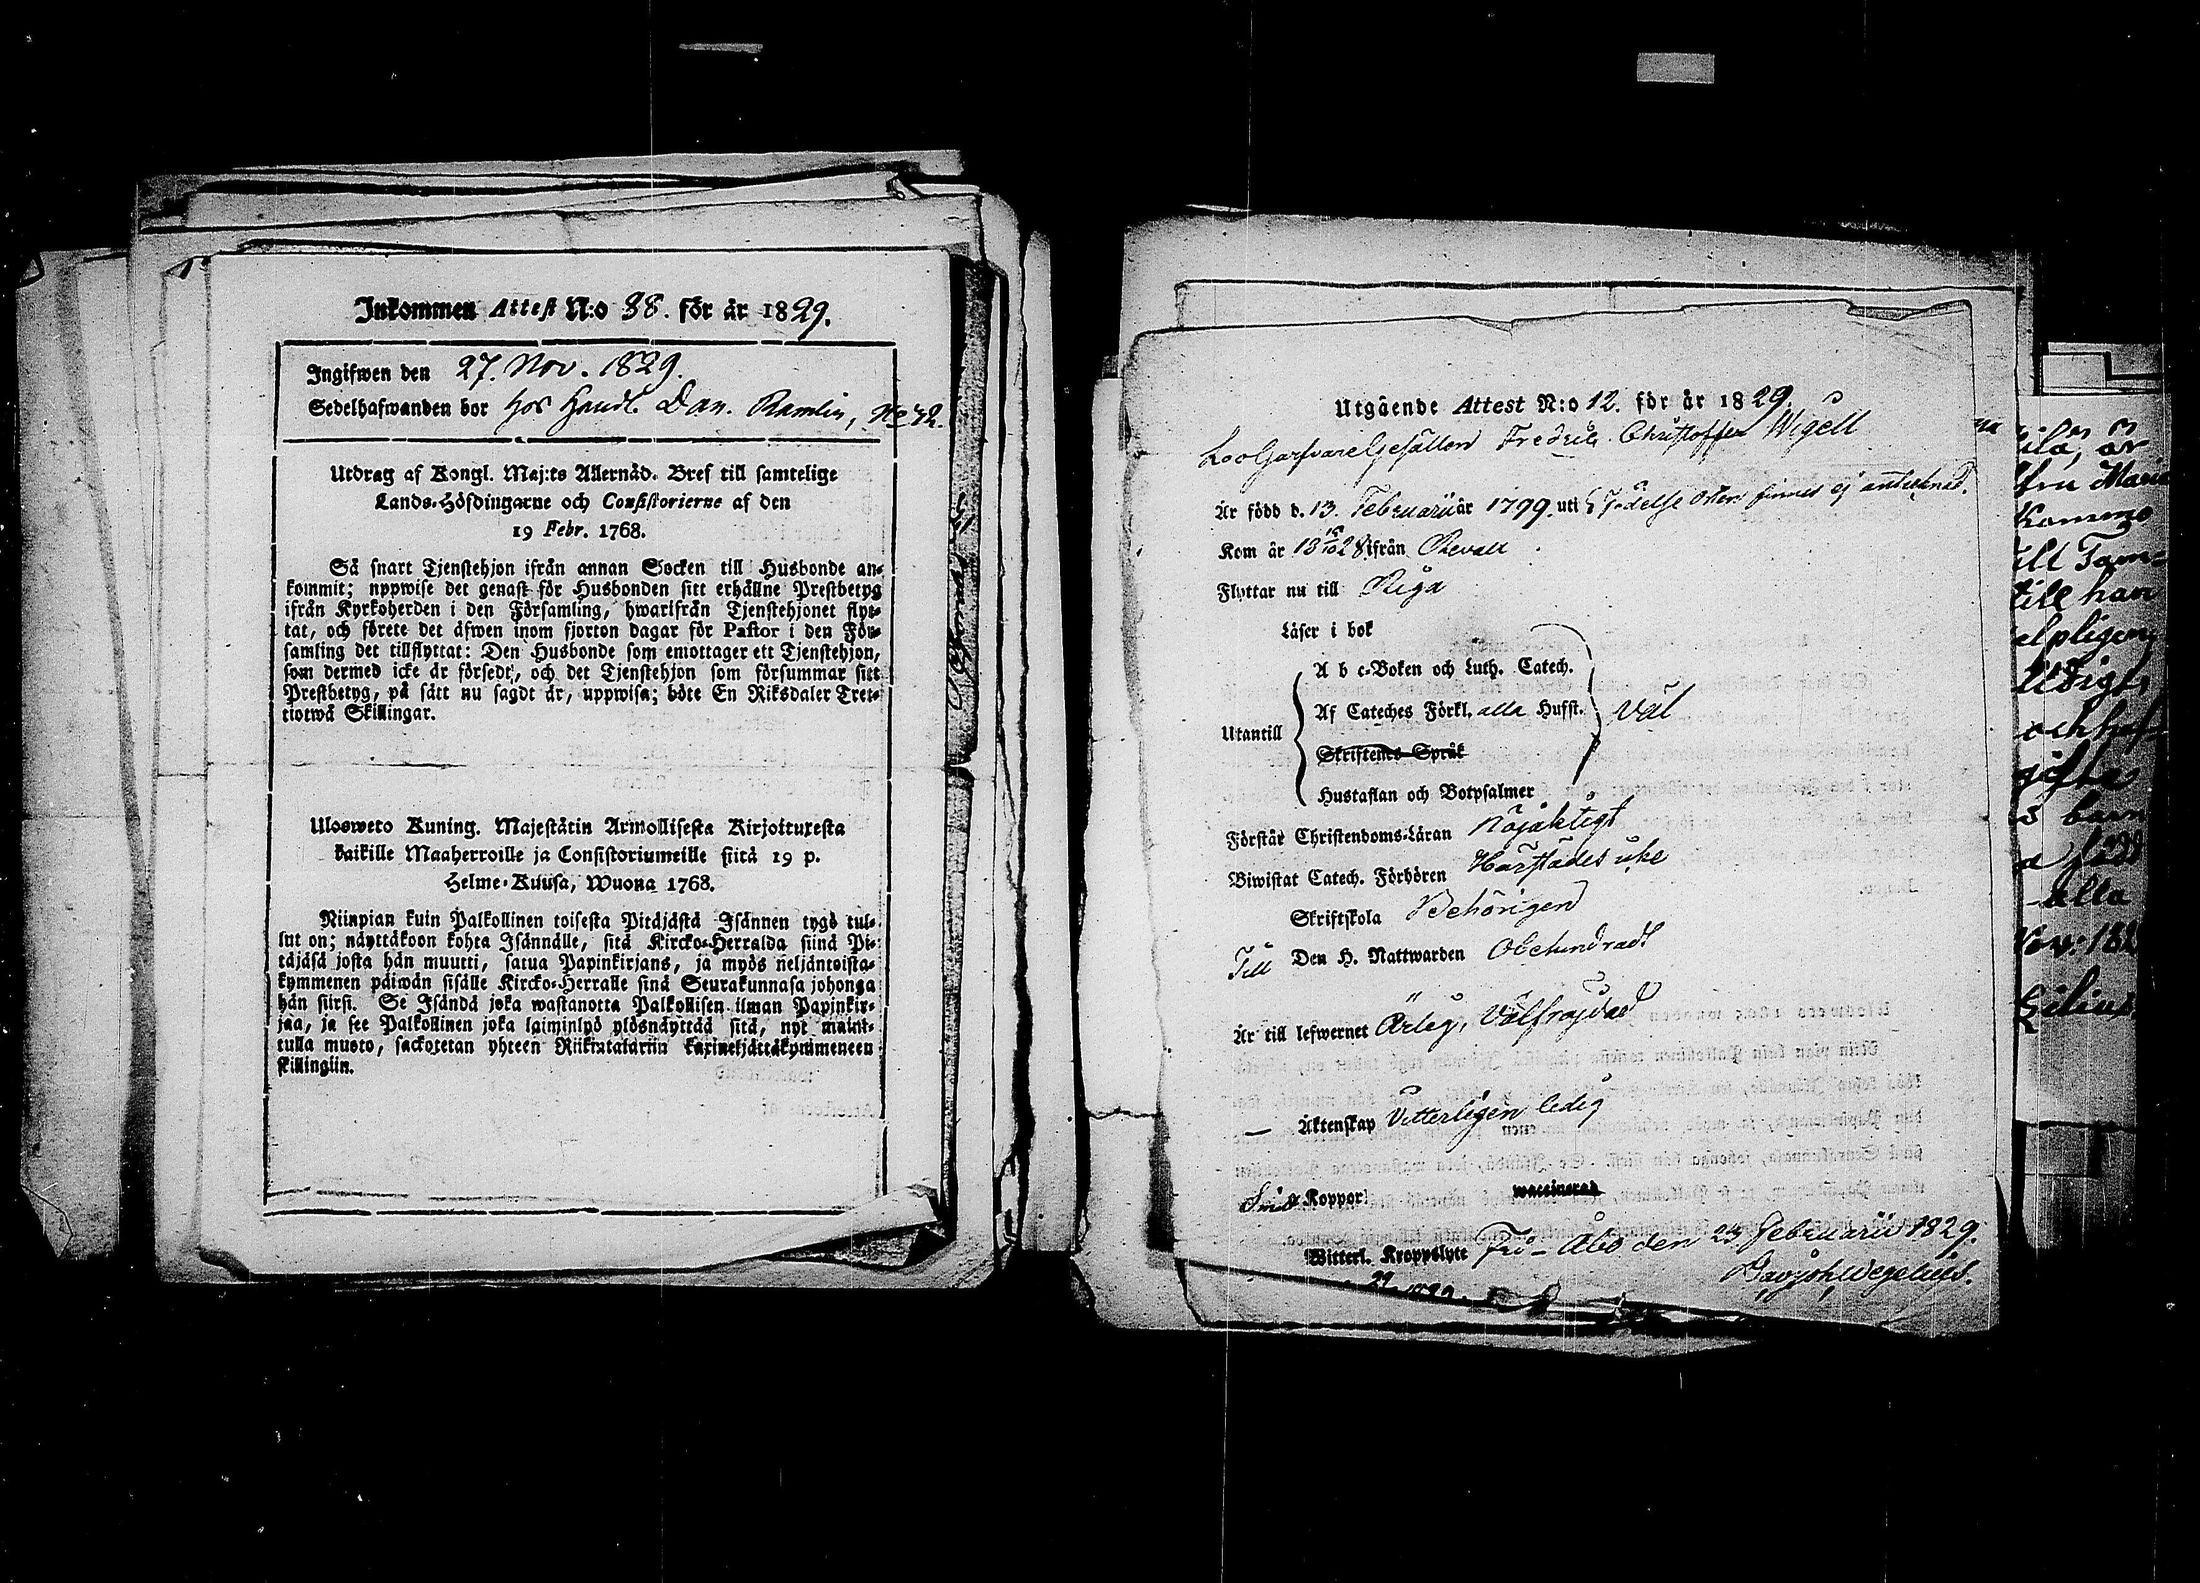 Inkommen Attest N:o 38. för år 1829.
Ingifwen den 27. Nov. 1829.
Sedelhafwanden bor hos Handl. Dan. Ramlin, No 42.
Utdrag af Kongl. Maj:ts Allernåd. Bref till samtelige
Lands-Höfdingarne och Consistorierne af den
19 Febr. 1768.
Så snart Tjenstehjon ifrån annan Socken till Husbonde an-
kommit; uppwise det genast för Husbonden sitt erhållne Prestbetyg
ifrån Kyrkoherden i den Församling, hwarifrån Tjenstehjonet flyt-
tat, och förete det äfwen inom fjorton dagar för Pastor i den För-
samling det tillflyttat: Den Husbonde som emottager ett Tjenstehjon,
som dermed icke är försedt, och det Tjenstehjon som försummar sitt
Prestbetyg, på sätt nu sagdt är, uppwisa; böte En Riksdaler Tret-
tiotwå Skillingar.
Ulosweto Kuning. Majestätin Armollisesta Kirjoituxesta
kaikille Maaherroille ja Consistoriumeille siitä 19 p.
Helme-Kuusa, Wuona 1768.
Niinpian kuin Palkollinen toisesta Pitäjästä Isännen tygö tul-
lut on; näyttäkoon kohta Isännälle, sitä Kircko-Herralda siinä Pi-
täjäsä josta hän muutti, satua Papinkirjans, ja myös neljäntoista-
kymmenen päiwän sisälle Kircko-Herralle sinä Seurakunnasa johonga
hän siirsi. Se Isändä joka wastanotta Palkollisen ilman Papinkir-
jaa, ja see Palkollinen joka laiminlyö ylösnäyttää sitä, nyt mainit-
tulla muoto, sackotetan yhteen Riikintalariin kaxineljättäkymmeneen
skillingiin.
Utgående Attest N:o 12. för år 1829.
Fredric Christoffer Wigell
Är född d. 13. Februarii år 1799. uti Födelse Orten finnes ej antecknad.
Kom år 18 15/10 28 ifrån Reval
Flyttar nu till Riga
Läser i bok
A b c-Boken och Luth. Catech.
Utantill Af Cateches Förkl. alla Hufst. Väl
Skriftenes Språk
Hustaflan och Botpsalmer
Förstår Christendoms-Läran Nöjaktigt
Biwistat Catech. Förhören Harstädes icke
Skriftskola Behörigen
Till Den H. Nattwarden Obehindradt
Är till lefwernet Ärlig, Välfrejdad
— Äktenskap Vitterligen ledig
Koppor waccinerad
Witterl. Kroppslyte Fri – Åbo den 23 Februarii 1829.
Wegelius.
ila, är
fru Maria
till Tam-
till han
alla